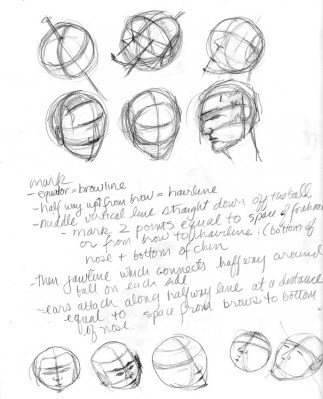 mark
- equator = browline
- half way up from brow = hairline
- middle vertical line straight down off the ball
- mark 2 points equal to space of
or from brow to hairline : (bottom of
nose + bottom of chin
- then jawline which connects halfway around
ball on each side
- ears attach along halfway line at a distance
equal to space from brows to bottom
of nose